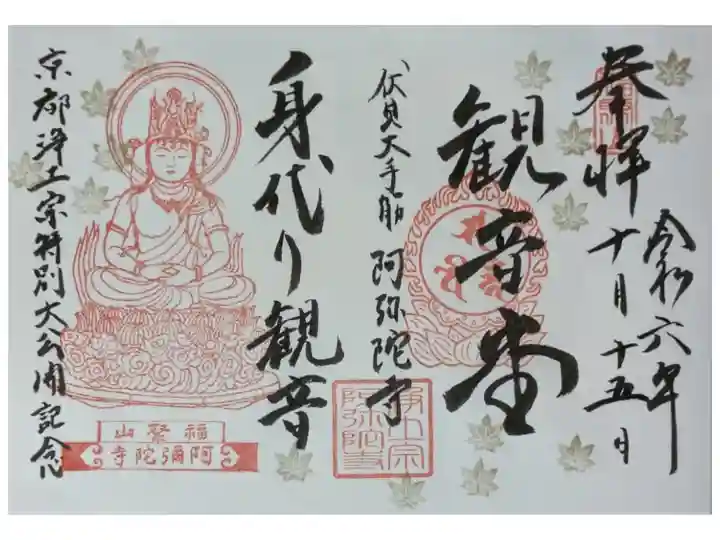 奉拝
令和六年
十月十五日
観音堂
伏見大手筋 阿弥陀寺
浄土宗
弥陀寺
身代り観音
京都浄土宗特別大公開記念
福聚山
阿彌陀寺